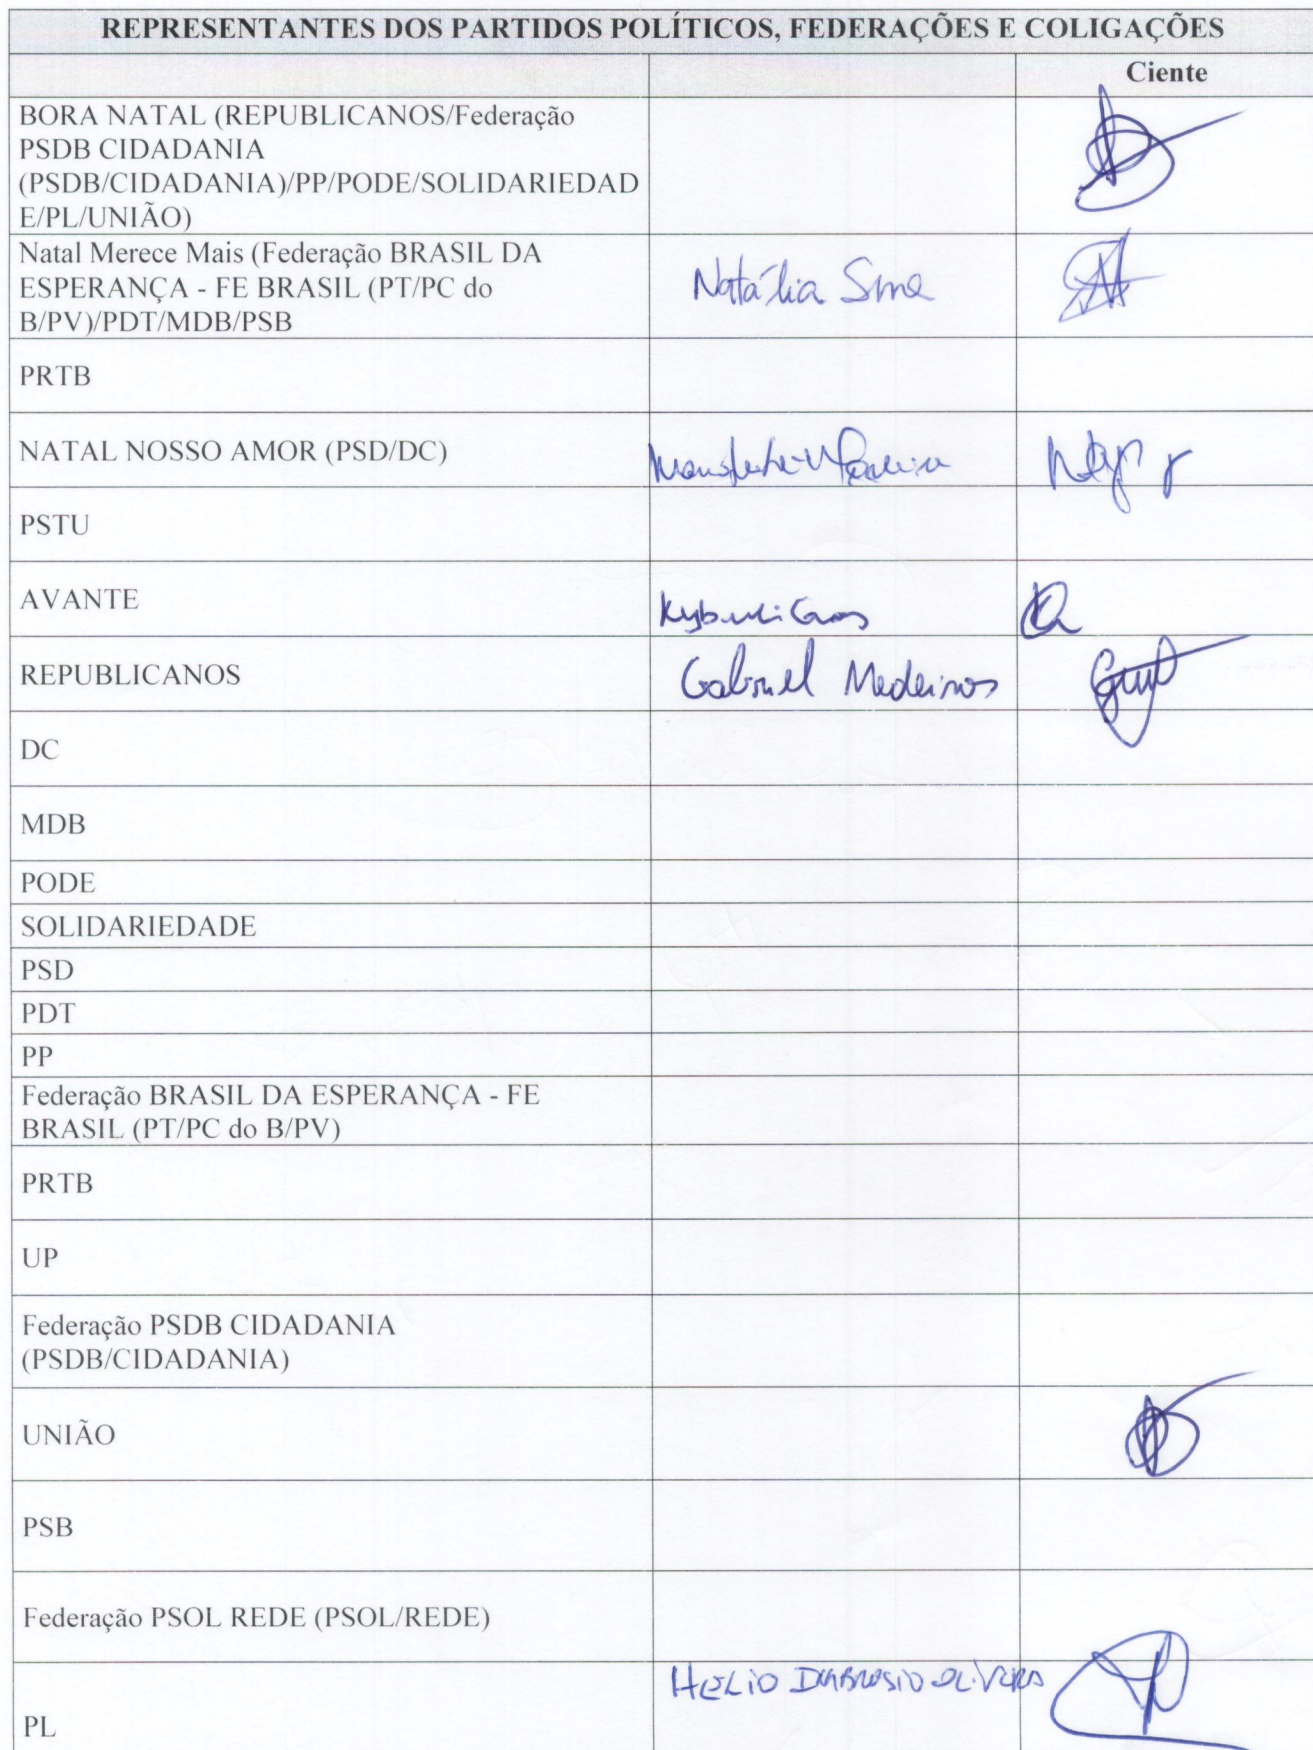 REPRESENTANTES DOS PARTIDOS POLÍTICOS, FEDERAÇÕES E COLIGAÇÕES
Ciente
BORA NATAL (REPUBLICANOS/Federação
PSDB CIDADANIA
(PSDB/CIDADANIA)/PP/PODE/SOLIDARIEDAD
E/PL/UNIÃO)
Natal Merece Mais (Federação BRASIL DA
ESPERANÇA - FE BRASIL (PT/PC do
B/PV)/PDT/MDB/PSB
Natália
PRTB
NATAL NOSSO AMOR (PSD/DC)
PSTU
AVANTE
REPUBLICANOS
Gabriel Medeiros
DC
MDB
PODE
SOLIDARIEDADE
PSD
PDT
PP
Federação BRASIL DA ESPERANÇA - FE
BRASIL (PT/PC do B/PV)
PRTB
UP
Federação PSDB CIDADANIA
(PSDB/CIDADANIA)
UNIÃO
PSB
Federação PSOL REDE (PSOL/REDE)
HELIO
PL